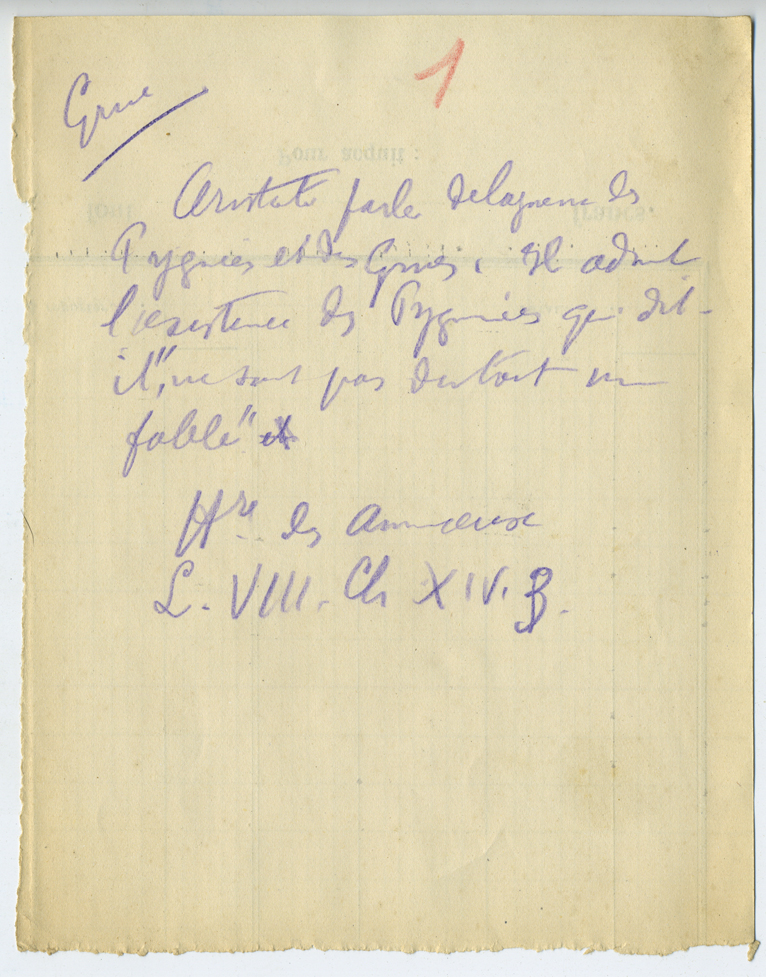 1
Grue
Aristote parle de la guerre des
Pygmées et des Grues. Il admet
l'existence des Pygmées qui dit-
il, "ne sont pas du tout une
fable"
Hre des Animaux
L. VIII. Ch XIV. B.
Pour acquit :
francs